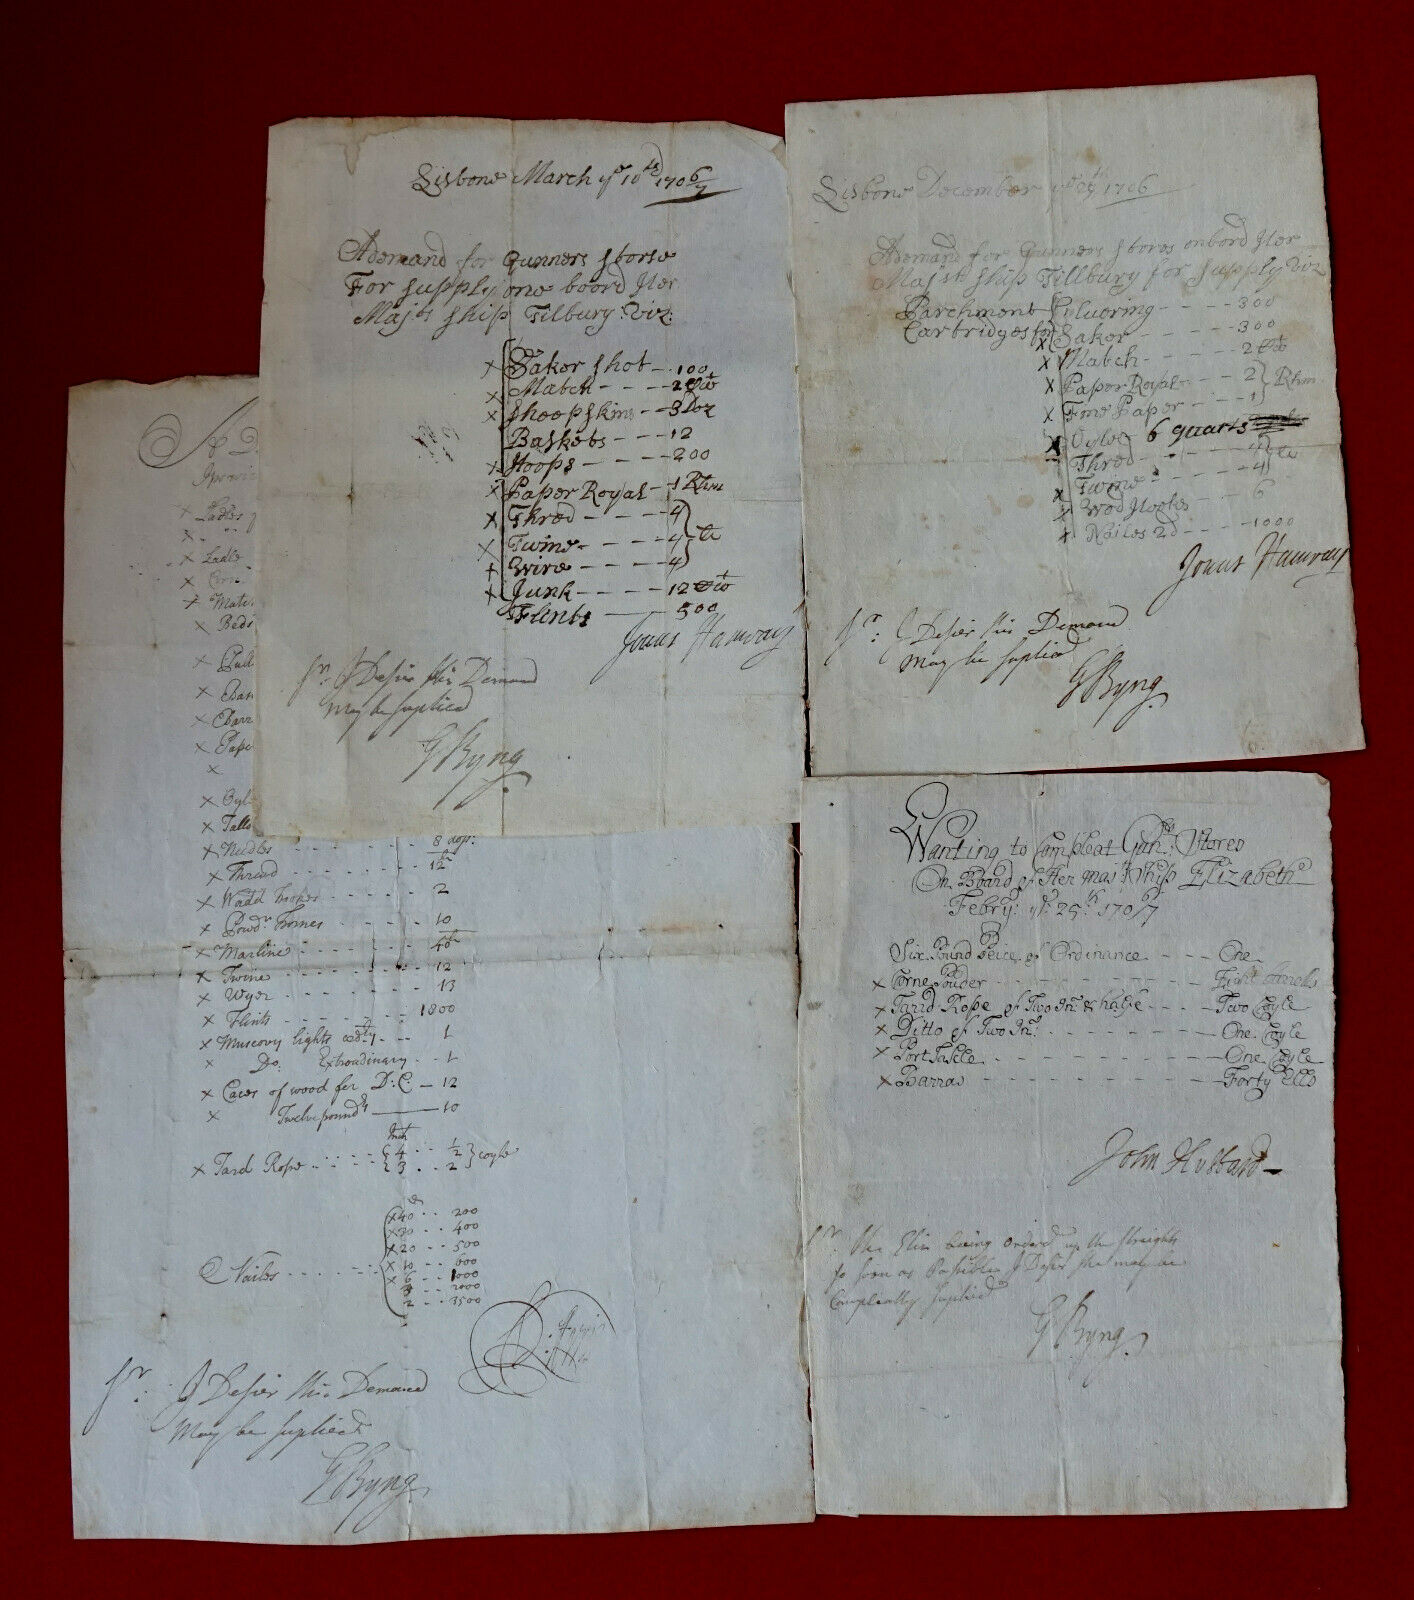 Lisbone March ye 10th 1706/7
A demand for Gunners storse
For supply one boord Her
Majts ship Tilbury: viz:
x Saker shot - 100
Match - - - - 2 Cwt
x Sheepskins - - 3 Doz
Baskets - - - 12
x Hoops - - - - 200
x Paper Royal - 1 Rhm
x Thred - - - - 4
x Twine - - - - 4
x Wire - - - - 4
x Junk - - - - 12 Cwt
Flints - - - 500
Jonas Hanway
Sr. I Desier this Demand
may be suplied
G Byng
Lisbone December ye 29th 1706
A demand for Gunners stores onbord Her
Majsts ship Tillbury for supply viz
Parchment Culvering - - - - 300
Cartridyes for
x Saker - - - - - - 300
x Match - - - - - - 2 Cwt
x Paper Royal - - - 2 } Rhm
x Fine Paper - - - 1
x Oyle - 6 quarts
Thred - - - - 4
x Twine - - - - 4
x Wod Hookes - - - 6
x Nailes 2d - - - - 1000
Jonas Hanway
Sr: I Desier this Demand
may be suplied
G Byng
A D
x Ladles
x
x Ladle
x Corn
x Match
x Beds
x
x
x Barr
x Pape
x
x Oyl
x Tallo
x Needles - - - - - - - 8 doz:
x Thread - - - - - - - 12 lb
x Wadd hookes - - - - 2
x Powdr. hornes - - - - 10
x Marline - - - - - - 4 lb
x Twine - - - - - - - 12
x Wyer - - - - - - - 13
x Flints - - - - - - 1800
x Muscovy lights - - - 1
x Do: Extraordinary - - 1
x Cases of wood for D: C: - 12
x Twelve poundrs — 10
Inch
x Tard Rope - - - - { 4 - - 1/2 } coyle
{ 3 - - 2
d
x 40 - - 200
x 30 - - 400
x 20 - - 500
Nailes - - - - - x 10 - - 600
x 6 - - 1000
3 - - 2000
2 - - 3500
Sr: I Desier this Demand
May be suplied
G Byng
Wanting to Compleat Gunrs: Stores
On Board of Her Majts Ship Elizabethe
Febry: ye. 25th. 1706/7
Six Pound Peice of Ordinance - - - - One
x Corne Pouder - - - - - - Eight barrells
x Tarid Rope of Two In: & halfe - - - - Two Coyle
x Ditto of Two In: - - - - - - One Coyle
x Port Takle - - - - - - One Coyle
x Barras - - - - - - Forty Ells
John Hubbard
Sr: the Eliz being orderd up the straights
so soon as Possible I Desier she may be
Compleatly suplied
G Byng